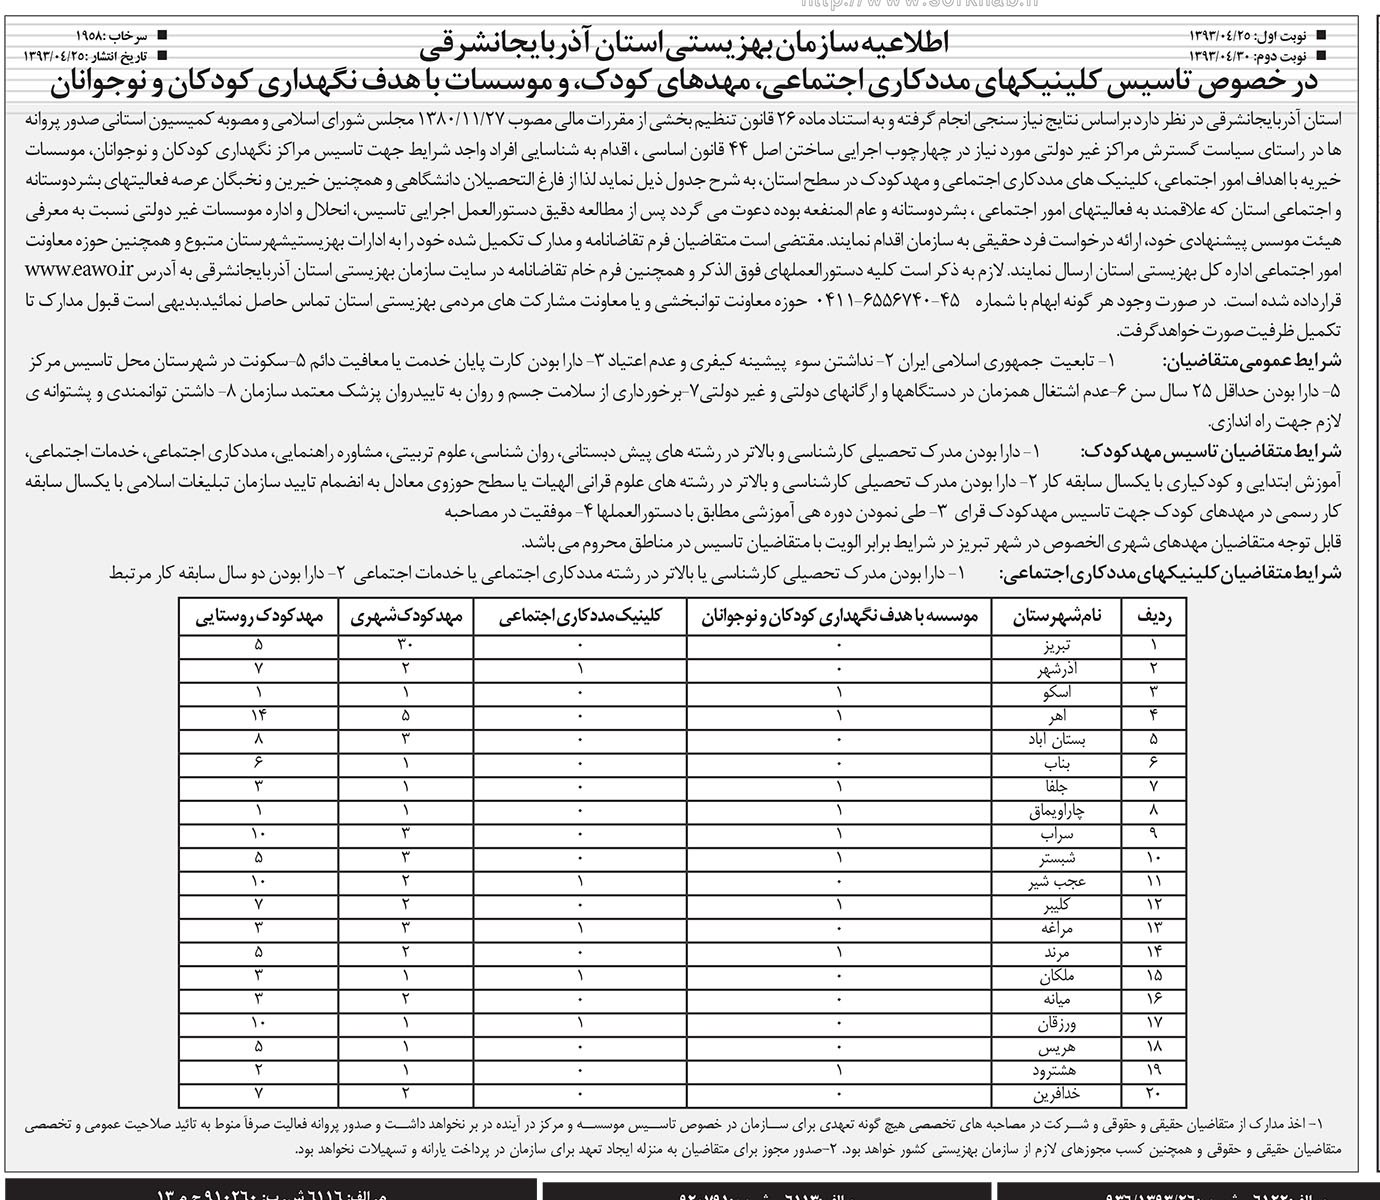 http://www.sorkhab.ir
■ نوبت اول: ۱۳۹۳/۰۴/۲۵
■ نوبت دوم: ۱۳۹۳/۰۴/۳۰
■ سرخاب :۱۹۵۸
■ تاریخ انتشار :۱۳۹۳/۰۴/۲۵
اطلاعیه سازمان بهزیستی استان آذربایجانشرقی
در خصوص تاسیس کلینیکهای مددکاری اجتماعی، مهدهای کودک، و موسسات با هدف نگهداری کودکان و نوجوانان
استان آذربایجانشرقی در نظر دارد براساس نتایج نیاز سنجی انجام گرفته و به استناد ماده ۲۶ قانون تنظیم بخشی از مقررات مالی مصوب ۱۳۸۰/۱۱/۲۷ مجلس شورای اسلامی و مصوبه کمیسیون استانی صدور پروانه
ها در راستای سیاست گسترش مراکز غیر دولتی مورد نیاز در چهارچوب اجرایی ساختن اصل ۴۴ قانون اساسی ، اقدام به شناسایی افراد واجد شرایط جهت تاسیس مراکز نگهداری کودکان و نوجوانان، موسسات
خیریه با اهداف امور اجتماعی، کلینیک های مددکاری اجتماعی و مهدکودک در سطح استان، به شرح جدول ذیل نماید لذا از فارغ التحصیلان دانشگاهی و همچنین خیرین و نخبگان عرصه فعالیتهای بشردوستانه
و اجتماعی استان که علاقمند به فعالیتهای امور اجتماعی ، بشردوستانه و عام المنفعه بوده دعوت می گردد پس از مطالعه دقیق دستورالعمل اجرایی تاسیس، انحلال و اداره موسسات غیر دولتی نسبت به معرفی
هیئت موسس پیشنهادی خود، ارائه درخواست فرد حقیقی به سازمان اقدام نمایند. مقتضی است متقاضیان فرم تقاضانامه و مدارک تکمیل شده خود را به ادارات بهزیستیشهرستان متبوع و همچنین حوزه معاونت
امور اجتماعی اداره کل بهزیستی استان ارسال نمایند. لازم به ذکر است کلیه دستورالعملهای فوق الذکر و همچنین فرم خام تقاضانامه در سایت سازمان بهزیستی استان آذربایجانشرقی به آدرس www.eawo.ir
قرارداده شده است. در صورت وجود هر گونه ابهام با شماره ۴۵-۶۵۵۶۷۴۰-۰۴۱۱ حوزه معاونت توانبخشی و یا معاونت مشارکت های مردمی بهزیستی استان تماس حاصل نمائید.بدیهی است قبول مدارک تا
تکمیل ظرفیت صورت خواهدگرفت.
شرایط عمومی متقاضیان: ۱- تابعیت جمهوری اسلامی ایران ۲- نداشتن سوء پیشینه کیفری و عدم اعتیاد ۳- دارا بودن کارت پایان خدمت یا معافیت دائم ۵-سکونت در شهرستان محل تاسیس مرکز
۵- دارا بودن حداقل ۲۵ سال سن ۶-عدم اشتغال همزمان در دستگاهها و ارگانهای دولتی و غیر دولتی۷-برخورداری از سلامت جسم و روان به تاییدروان پزشک معتمد سازمان ۸- داشتن توانمندی و پشتوانه ی
لازم جهت راه اندازی.
شرایط متقاضیان تاسیس مهدکودک: ۱- دارا بودن مدرک تحصیلی کارشناسی و بالاتر در رشته های پیش دبستانی، روان شناسی، علوم تربیتی، مشاوره راهنمایی، مددکاری اجتماعی، خدمات اجتماعی،
آموزش ابتدایی و کودکیاری با یکسال سابقه کار ۲- دارا بودن مدرک تحصیلی کارشناسی و بالاتر در رشته های علوم قرانی الهیات یا سطح حوزوی معادل به انضمام تایید سازمان تبلیغات اسلامی با یکسال سابقه
کار رسمی در مهدهای کودک جهت تاسیس مهدکودک قرای ۳- طی نمودن دوره هی آموزشی مطابق با دستورالعملها ۴- موفقیت در مصاحبه
قابل توجه متقاضیان مهدهای شهری الخصوص در شهر تبریز در شرایط برابر الویت با متقاضیان تاسیس در مناطق محروم می باشد.
شرایط متقاضیان کلینیکهای مددکاری اجتماعی: ۱- دارا بودن مدرک تحصیلی کارشناسی یا بالاتر در رشته مددکاری اجتماعی یا خدمات اجتماعی ۲- دارا بودن دو سال سابقه کار مرتبط
ردیف نام شهرستان موسسه با هدف نگهداری کودکان و نوجوانان کلینیک مددکاری اجتماعی مهدکودک شهری مهدکودک روستایی
۱ تبریز ۰ ۰ ۳۰ ۵
۲ آذرشهر ۰ ۱ ۲ ۷
۳ اسکو ۱ ۰ ۱ ۱
۴ اهر ۱ ۰ ۵ ۱۴
۵ بستان آباد ۰ ۰ ۳ ۸
۶ بناب ۰ ۰ ۱ ۶
۷ جلفا ۱ ۰ ۱ ۳
۸ چاراویماق ۱ ۰ ۱ ۱
۹ سراب ۱ ۰ ۳ ۱۰
۱۰ شبستر ۱ ۰ ۳ ۵
۱۱ عجب شیر ۰ ۱ ۲ ۱۰
۱۲ کلیبر ۱ ۰ ۲ ۷
۱۳ مراغه ۰ ۱ ۳ ۳
۱۴ مرند ۱ ۰ ۲ ۵
۱۵ ملکان ۰ ۱ ۱ ۳
۱۶ میانه ۰ ۰ ۲ ۳
۱۷ ورزقان ۰ ۱ ۱ ۱۰
۱۸ هریس ۰ ۰ ۱ ۵
۱۹ هشترود ۱ ۰ ۱ ۲
۲۰ خدافرین ۰ ۰ ۲ ۷
۱- اخذ مدارک از متقاضیان حقیقی و حقوقی و شرکت در مصاحبه های تخصصی هیچ گونه تعهدی برای سازمان در خصوص تاسیس موسسه و مرکز در آینده در بر نخواهد داشت و صدور پروانه فعالیت صرفاً منوط به تائید صلاحیت عمومی و تخصصی
متقاضیان حقیقی و حقوقی و همچنین کسب مجوزهای لازم از سازمان بهزیستی کشور خواهد بود. ۲-صدور مجوز برای متقاضیان به منزله ایجاد تعهد برای سازمان در پرداخت یارانه و تسهیلات نخواهد بود.